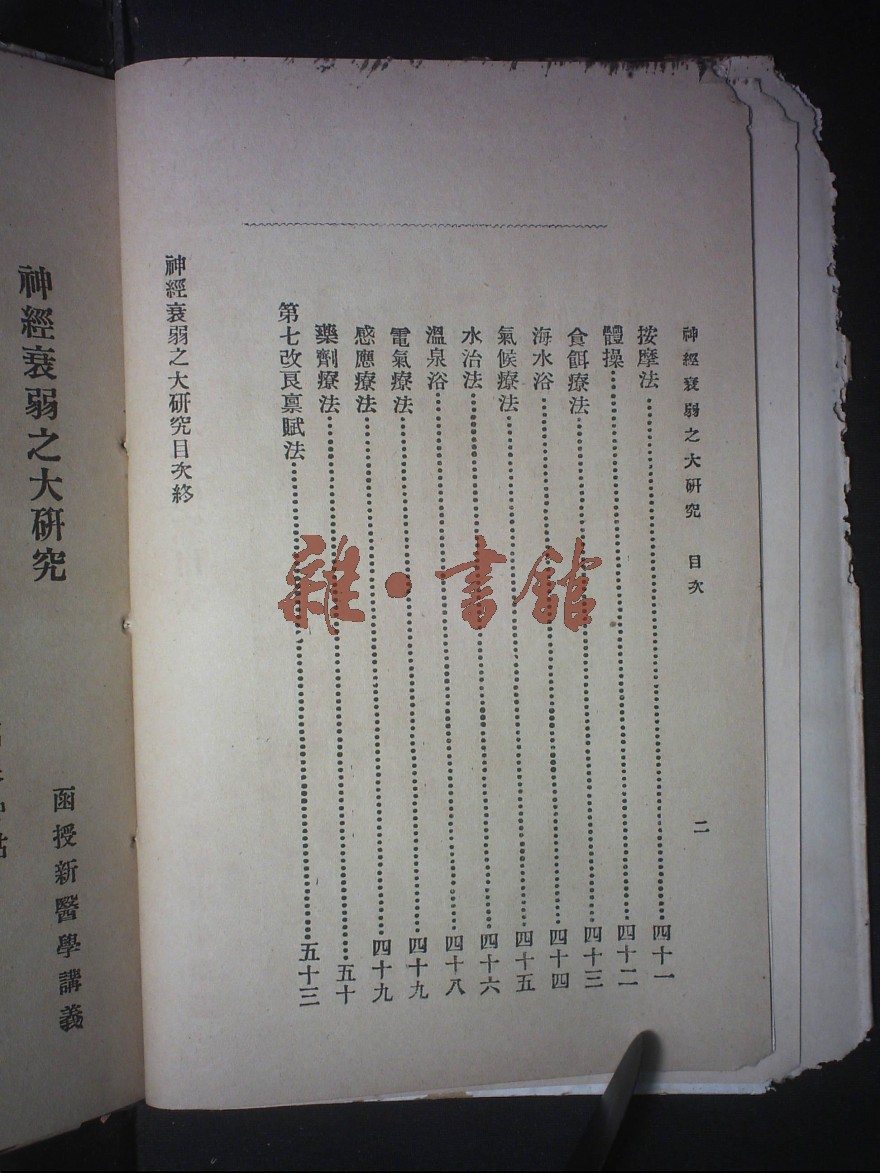 神經衰弱之大研究　目次　二
按摩法……四十一
體操……四十二
食餌療法……四十三
海水浴……四十四
氣候療法……四十五
水治法……四十六
溫泉浴……四十八
電氣療法……四十九
感應療法……四十九
藥劑療法……五十
第七改良禀賦法……五十三
神經衰弱之大研究目次終
雜·書館
函授新醫學講義
神經衰弱之大研究